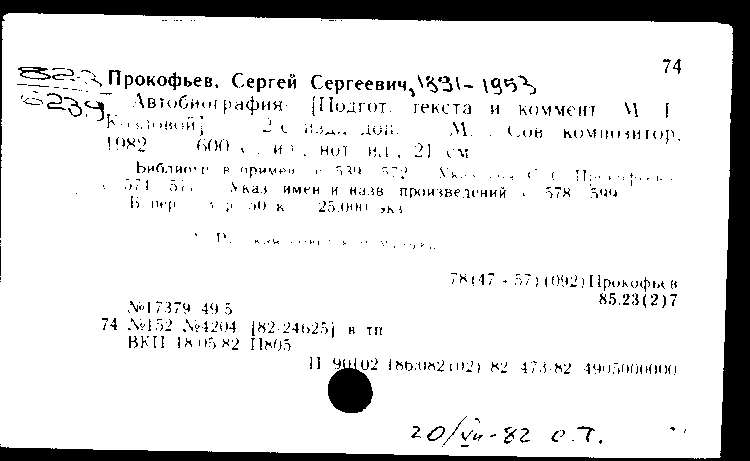 74
823
623.9
Прокофьев, Сергей Сергеевич, 1891-1953
Автобиография [Подгот. текста и коммент. М. Г.
Козловой] 2-е изд., доп. М. : Сов. композитор,
1982 600 с., ил., нот. ил., 21 см
Библиогр. в примеч. с. 539 572 Указ. С. С.
с. 574 577 Указ. имен и назв. произведений с. 578 599
В пер. р. 50 к. 25.000 экз.
78(47 + 57)(092)Прокофьев
85.23(2)7
№17379 49 5
74 №152 №4204 [82-24625] в тп
ВКП 18.05.82 П805
П 90102 186082(02) 82 473-82 4905000000
20/VII-82 О.Т.